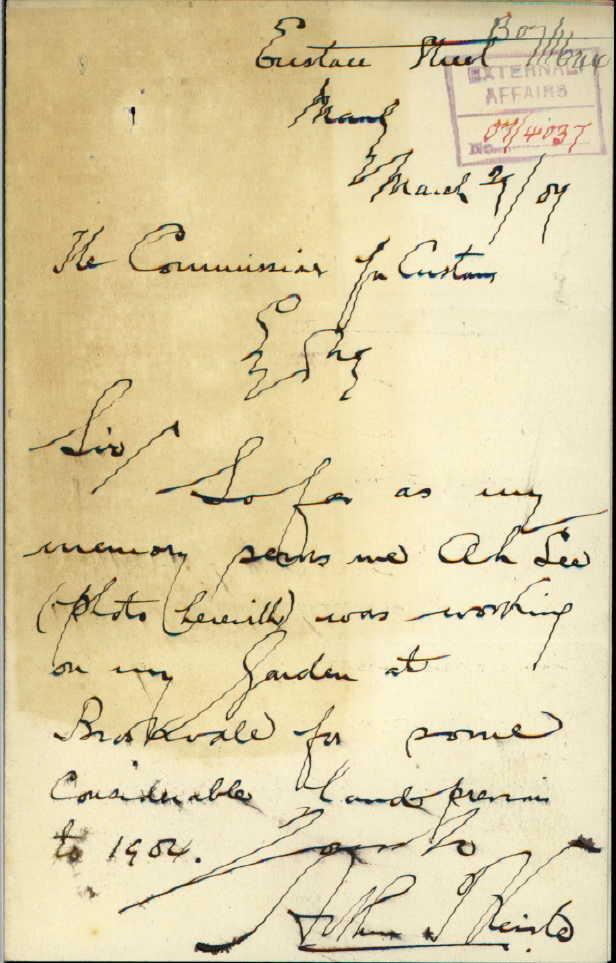 Eustace Street
EXTERNAL
AFFAIRS
No. 07/4037
Manly
March 29/07
The Commissioner for Customs
Sydney
Sir/ So far as my
memory serves me Ah Lee
(photo herewith) was working
on my Garden at
Brookvale for some
Considerable time previous
to 1904.
Yours &c
Arthur